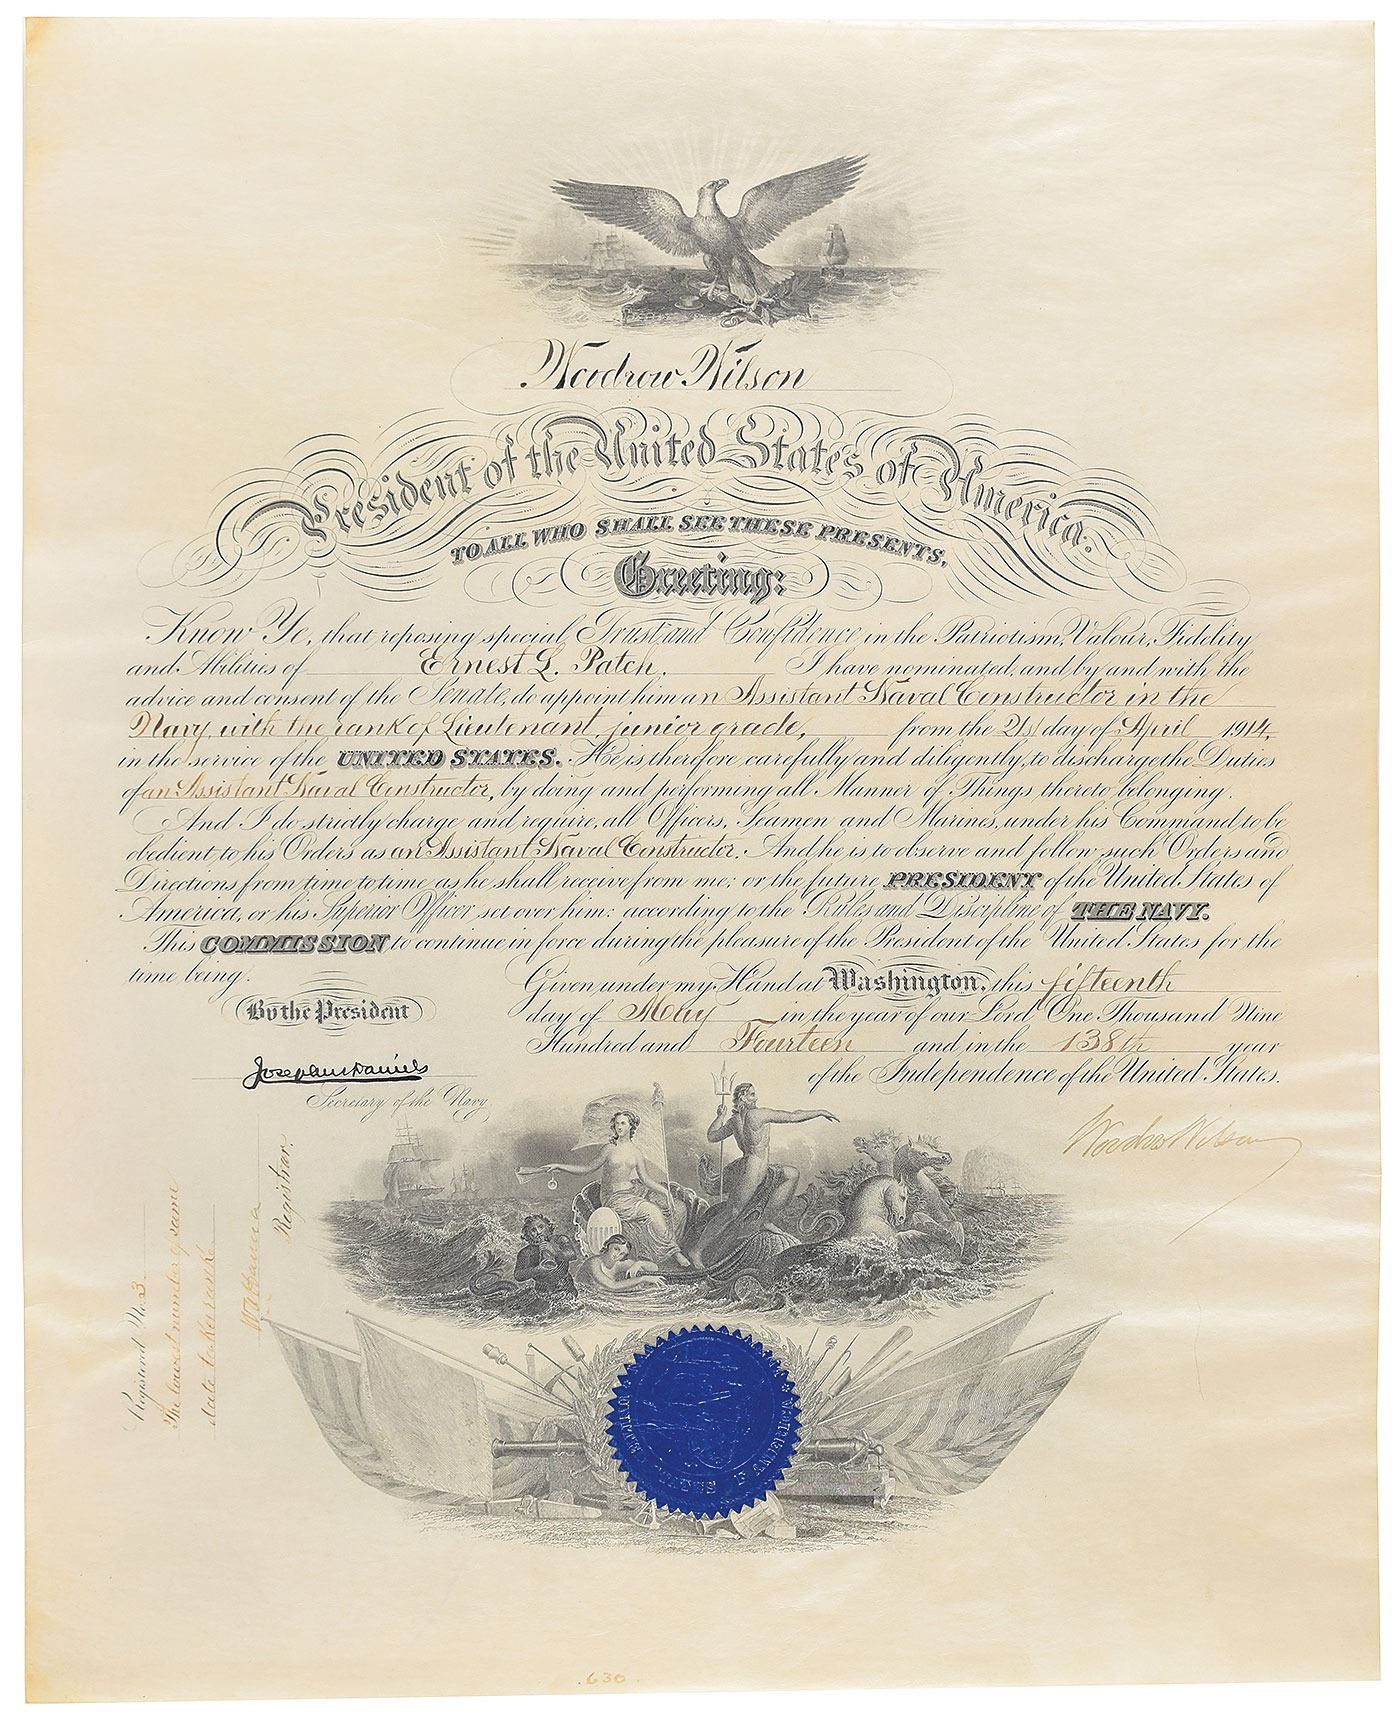 Woodrow Wilson
President of the United States of America.
TO ALL WHO SHALL SEE THESE PRESENTS,
Greeting:
Know Ye, that reposing special Trust and Confidence in the Patriotism, Valour, Fidelity
and Abilities of Ernest L. Patch, I have nominated, and by and with the
advice and consent of the Senate, do appoint him an Assistant Naval Constructor in the
Navy, with the rank of Lieutenant, junior grade, from the 21st day of April 1914,
in the service of the UNITED STATES. He is therefore carefully and diligently, to discharge the Duties
of an Assistant Naval Constructor, by doing and performing all Manner of Things thereto belonging.
And I do strictly charge and require, all Officers, Seamen and Marines, under his Command to be
obedient to his Orders as an Assistant Naval Constructor. And he is to observe and follow such Orders and
Directions from time to time as he shall receive from me; or the future PRESIDENT of the United States of
America, or his Superior Officer set over him: according to the Rules and Discipline of THE NAVY.
This COMMISSION to continue in force during the pleasure of the President of the United States for the
time being.
Given under my Hand at Washington, this fifteenth
day of May in the year of our Lord One Thousand Nine
Hundred and Fourteen and in the 138th year
of the Independence of the United States.
By the President
Josephus Daniels
Secretary of the Navy
Woodrow Wilson
Registered No. 3
The lowest number of same
date takes rank
Registrar.
630